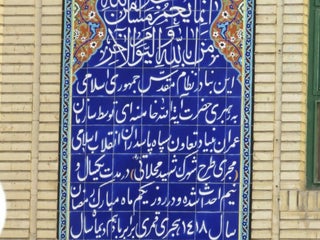 انما یعمر مساجد الله
من آمن بالله و الیوم الآخر
این بنا در نظام مقدس جمهوری اسلامی
به رهبری حضرت آیة الله خامنه‌ای توسط سازمان
عمران بنیاد تعاون سپاه پاسداران انقلاب اسلامی
مجری طرح شهرک شهید محلاتی در مدت یکسال و
نیم احداث شده و در روز یکم ماه مبارک رمضان
سال ۱۴۱۸ هجری قمری برابر با دهم دیماه سال